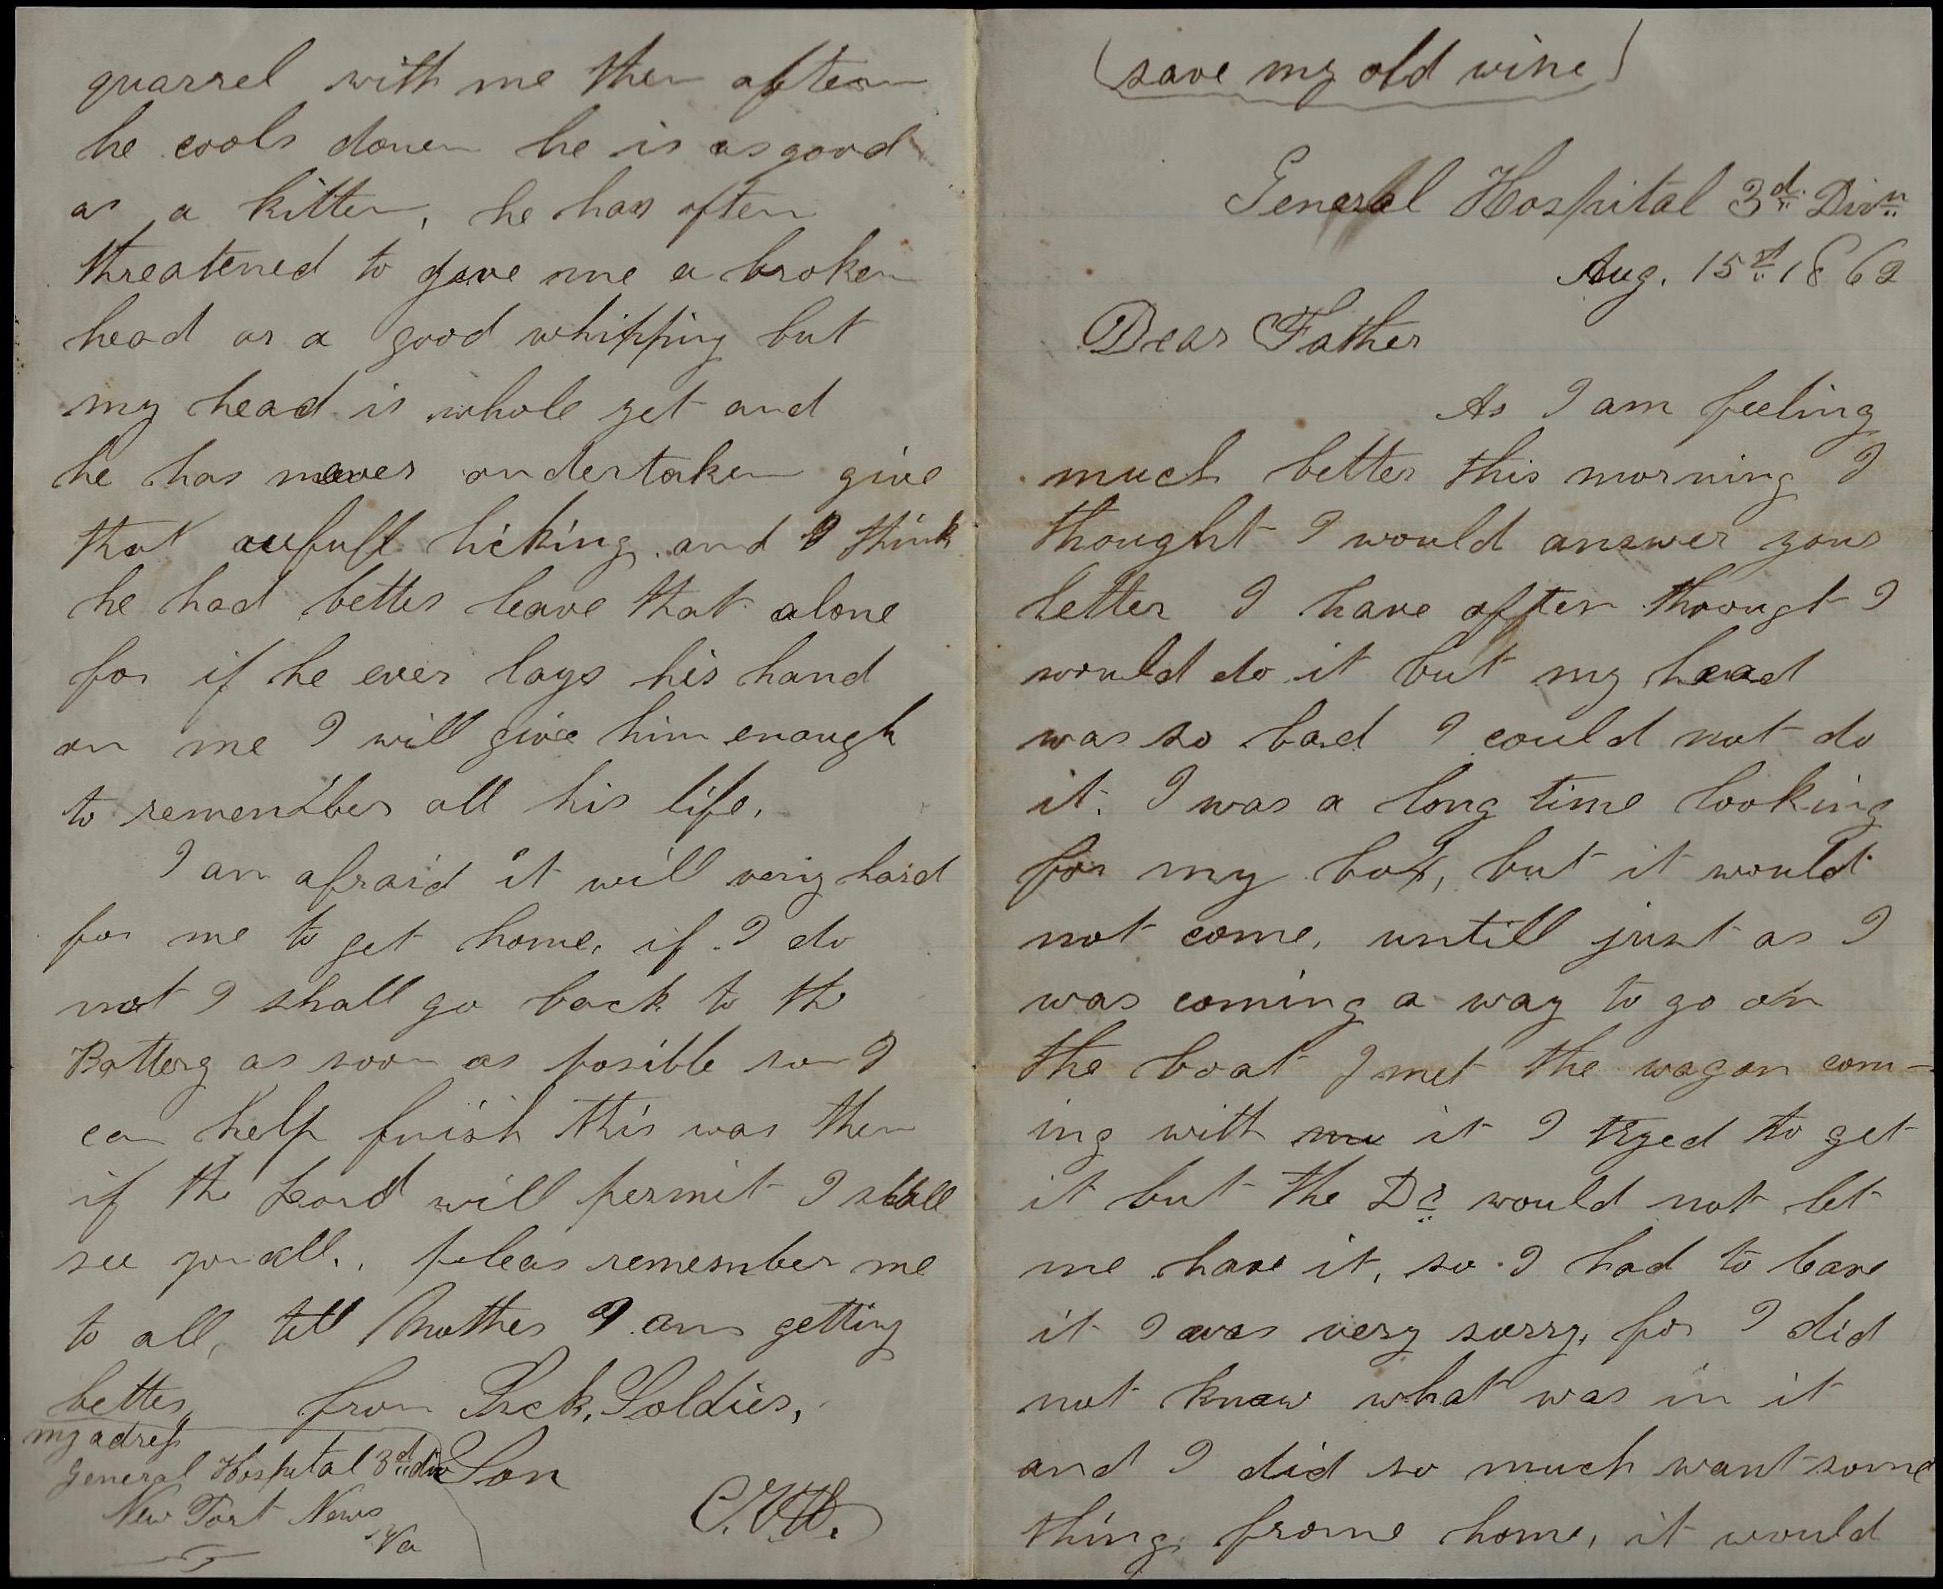 quarrel with me then aftem
he cools douen he is as good
as a kitten, he has often
threatened to gave me a broken
head or a good whipping but
my head is whole yet and
he has never undertaken give
that aufull licking and I think
he had better leave that alone
for if he ever lays his hand
on me I will give him enough
to remember all his life.
I am afraid it will very hard
for me to get home. if I do
not I shall go back to the
Battery as soon as posible so I
can help finish this was then
if the Lord will permit I shall
see you all., pleas remember me
to all, tell Mother I am getting
better, from Sick, Soldier,
Son
C.V.H.
my adress
General Hospital 3d div
New Port News
Va
(save my old wine)
General Hospital 3d. Divn
Aug. 15th 1862
Dear Father
As I am feeling
much better this morning I
thought I would answer your
letter I have often thought I
would do it but my head
was so bad I could not do
it. I was a long time looking
for my box, but it would
not come, untill just as I
was coming a way to go on
the boat I met the wagon com-
ing with it I tryed to get
it but the Dr would not let
me have it, so I had to leave
it I was very sorry, for I did
not know what was in it
and I did so much want some
thing frome home, it would